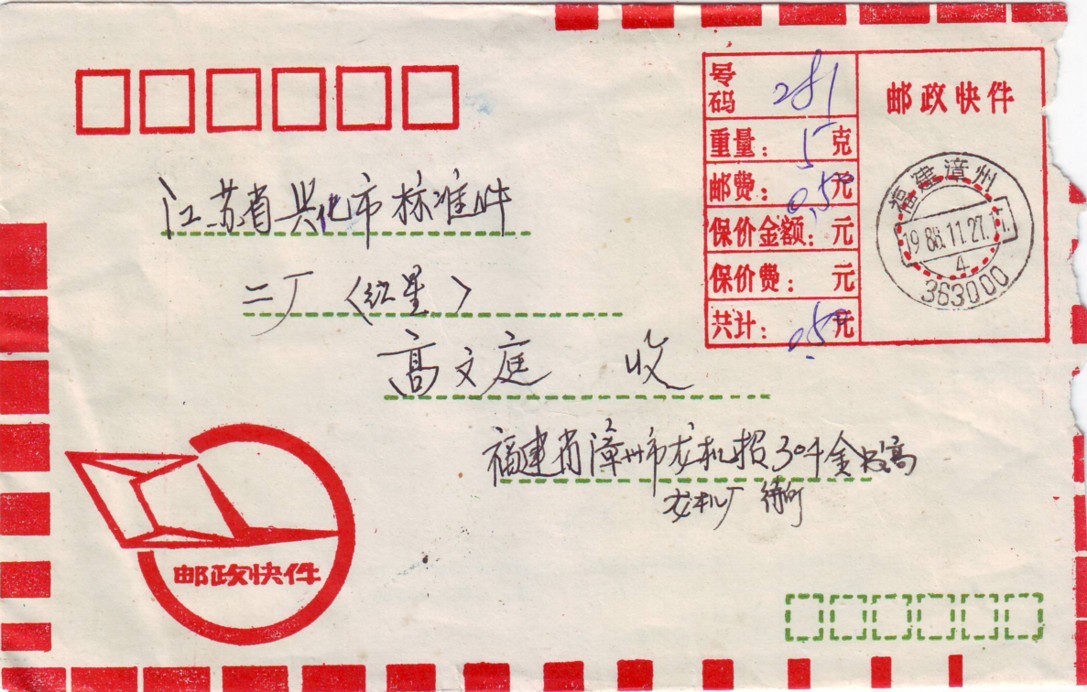 号码 281
邮政快件
重量：5克
邮费：0.50元
保价金额：元
保价费：元
共计：0.50元
福建漳州
1988.11.27.17.
4
363000
江苏省兴化市标准件
二厂〈红星〉
高文庭 收
福建省漳州市龙机报304金
龙机厂
邮政快件